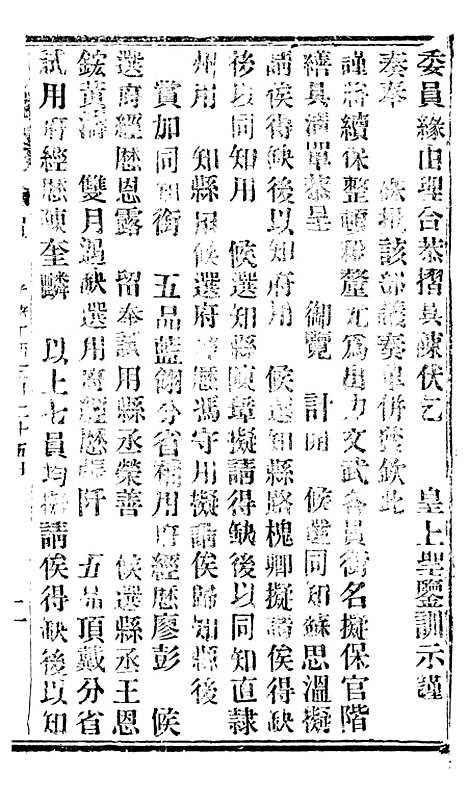 委員緣由理合恭摺具陳伏乞 皇上聖鑒訓示謹
奏奉 硃批該部議奏單併發欽此
謹將續保整頓稅釐尤為出力文武各員銜名擬保官階
繕具清單恭呈 御覽 計開 候選同知蘇思溫擬
請俟得缺後以知府用 候選知縣路槐卿擬請俟得缺
後以同知用 候選知縣 璋擬請得缺後以同知直隸
州用 知縣用候選府經歷馮守用擬請俟歸知縣後
賞加同知銜 五品藍翎分省補用府經歷廖彭 候
選府經歷恩露 留奉試用縣丞榮善 候選縣丞王恩
鋐黃濤 雙月遇缺選用府經歷 阡 五品頂戴分省
試用府經歷陳奎麟 以上七員均擬請俟得缺後以知
二一